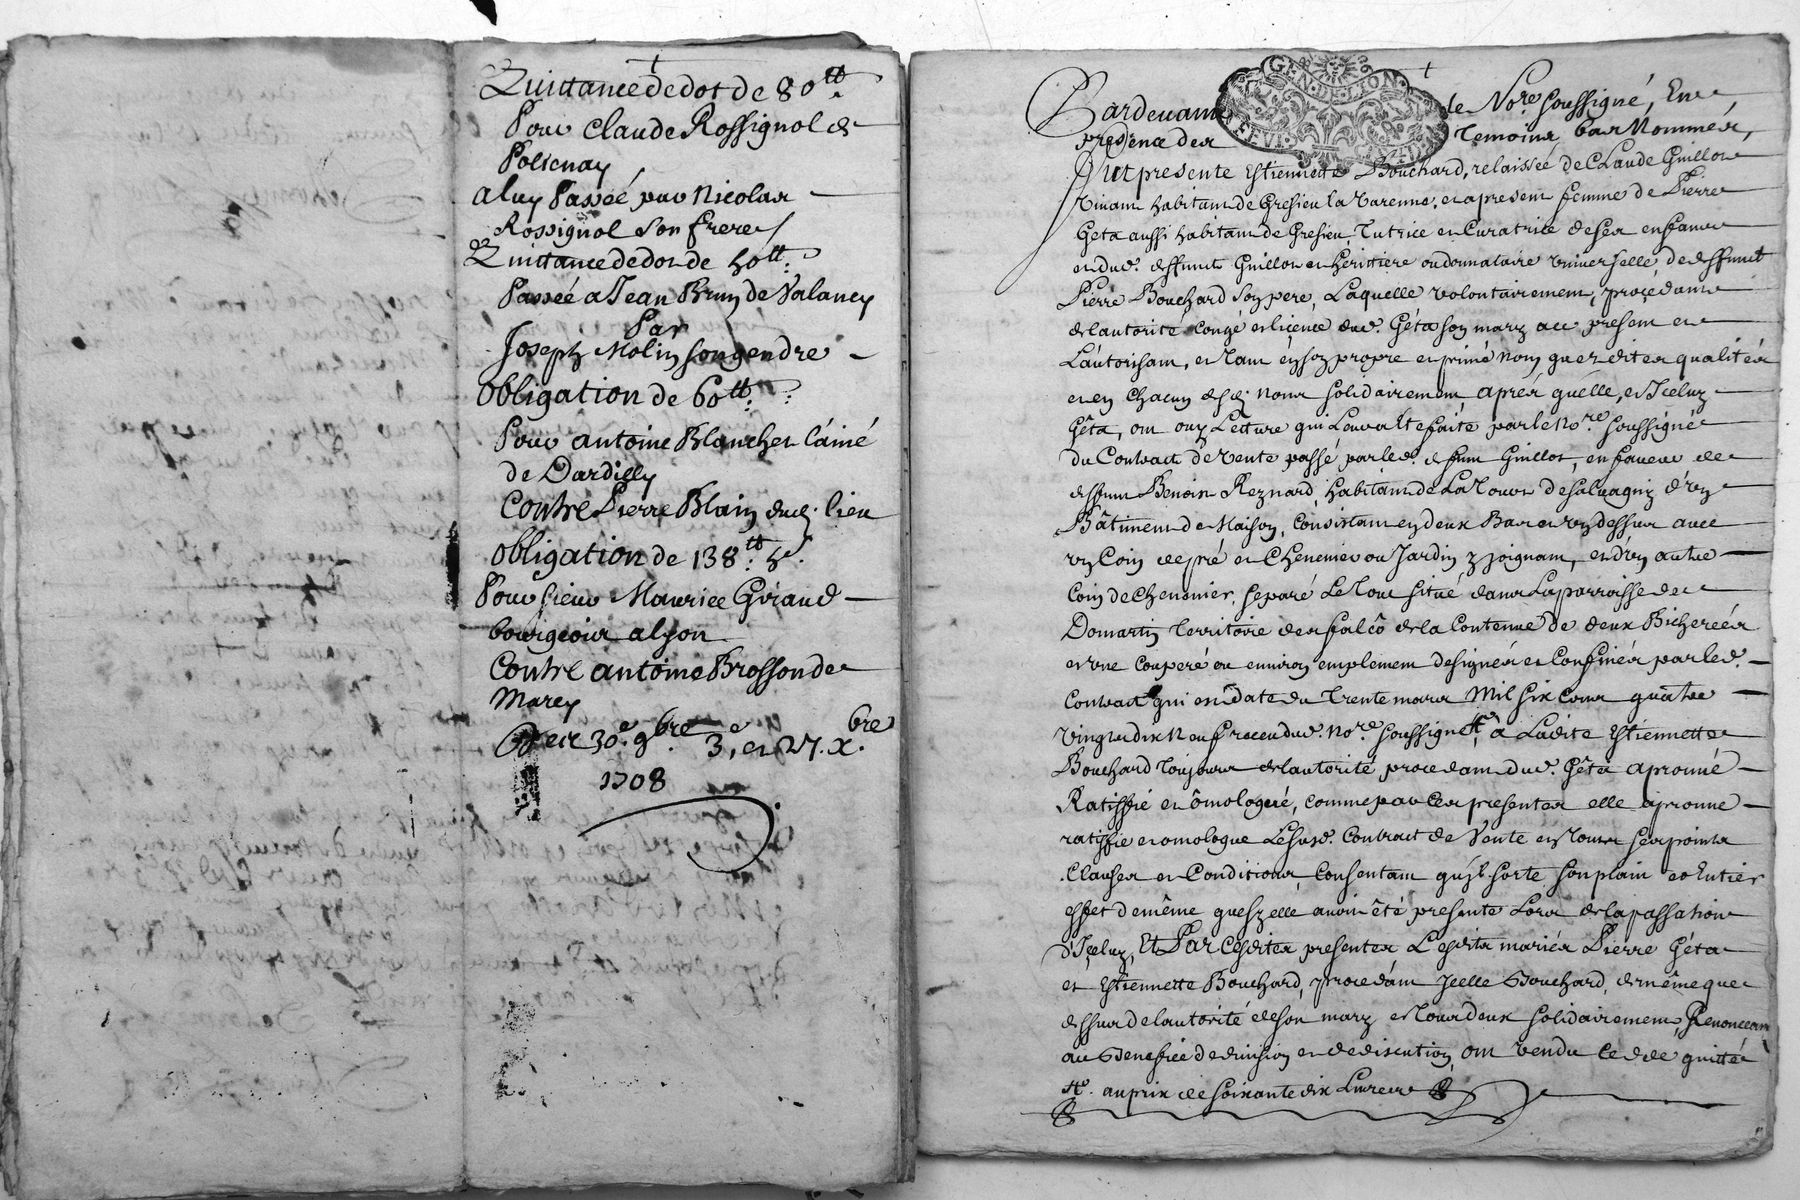 Quittance de dot de 80tt
Pour Claude Rossignol de
Polienay
a luy Passée par Nicolas
Rossignol son frere
Quittance de dot de 40tt.
Passée a Jean Brun de Valancy
Par
Joseph Molin son gendre
Obligation de 60tt.
Pour antoine Blanchet L'ainé
de Dardilly
Contre Pierre Blain dud. lieu
Obligation de 138tt. 5s.
Pour sieur Maurice Giraud
bourgeois a lyon
Contre antoine Brossonde
Marcy
30e. 9bre 3e, et 27. Xbre
1708
GEN. DE LYON
Pardevant le Nore. soussigné, En
presence des Temoins bas Nommés,
fut presente Estiennette Bouchard, relaissée de Claude Guillot
vivant habitant de Gresieu la varenne, et a present femme de Pierre
Géta aussi habitant de Gresieu, Tutrice et Curatrice de ses enfans
et dud. deffunt Guillot et heritiere ou donnataire universelle de deffunt
Pierre Bouchard son pere, Laquelle volontairement, procedant
de lautorite congé et licence dud. Géta son mary au present et
Lautorisant, et tant en son propre et privé nom que esdites qualités
et en chacun d'jc. noms solidairement apres qu'elle, et Jceluy
Géta, ont ouy Lecture qui Leur a esté faite par le No.re soussigné
du Contract de vente passé par led. defunt Guillot, en faveur de
deffunt Benoist Reynard, habitant de La Tour de salvagny d'un
Bâtiment de Maison, Consistant en deux Bas et un dessus avec
un Coin de pré et Chenevier ou Jardin y joignant, et d'un autre
Coin de Chenevier, separé Le tout situé dans La parroisse de
Domartin Territoire des falcô de la Contenue de deux Bicherées
et une couperé ou environ emplement designés et Confinés par led.
Contract qui en date du Trente mars Mil six cens quatre
vingts dix neuf receu dud. no.re soussigné, à Ladite Estiennette
Bouchard toujours de lautorité procedant dud. Géta aprouvé
Ratiffié et ômologué, comme par Ces presentes elle aprouve
ratiffie et omologue Le susd. Contract de Vente et tous ses points
Clauses et Conditions, Consentant qu'jl sorte son plain et Entier
effet de même que sy elle avoit été presente Lors de la passation
d'Jceluy, Et Par Cesdites presentes Lesdits mariés Pierre Géta
et Estiennette Bouchard, procedant Jcelle Bouchard, de même que
dessus de lautorité de son mary et tous deux solidairement, Renonceant
au Benefice de division et de discution, ont vendu cedde quitté
au prix de soixante dix Livres